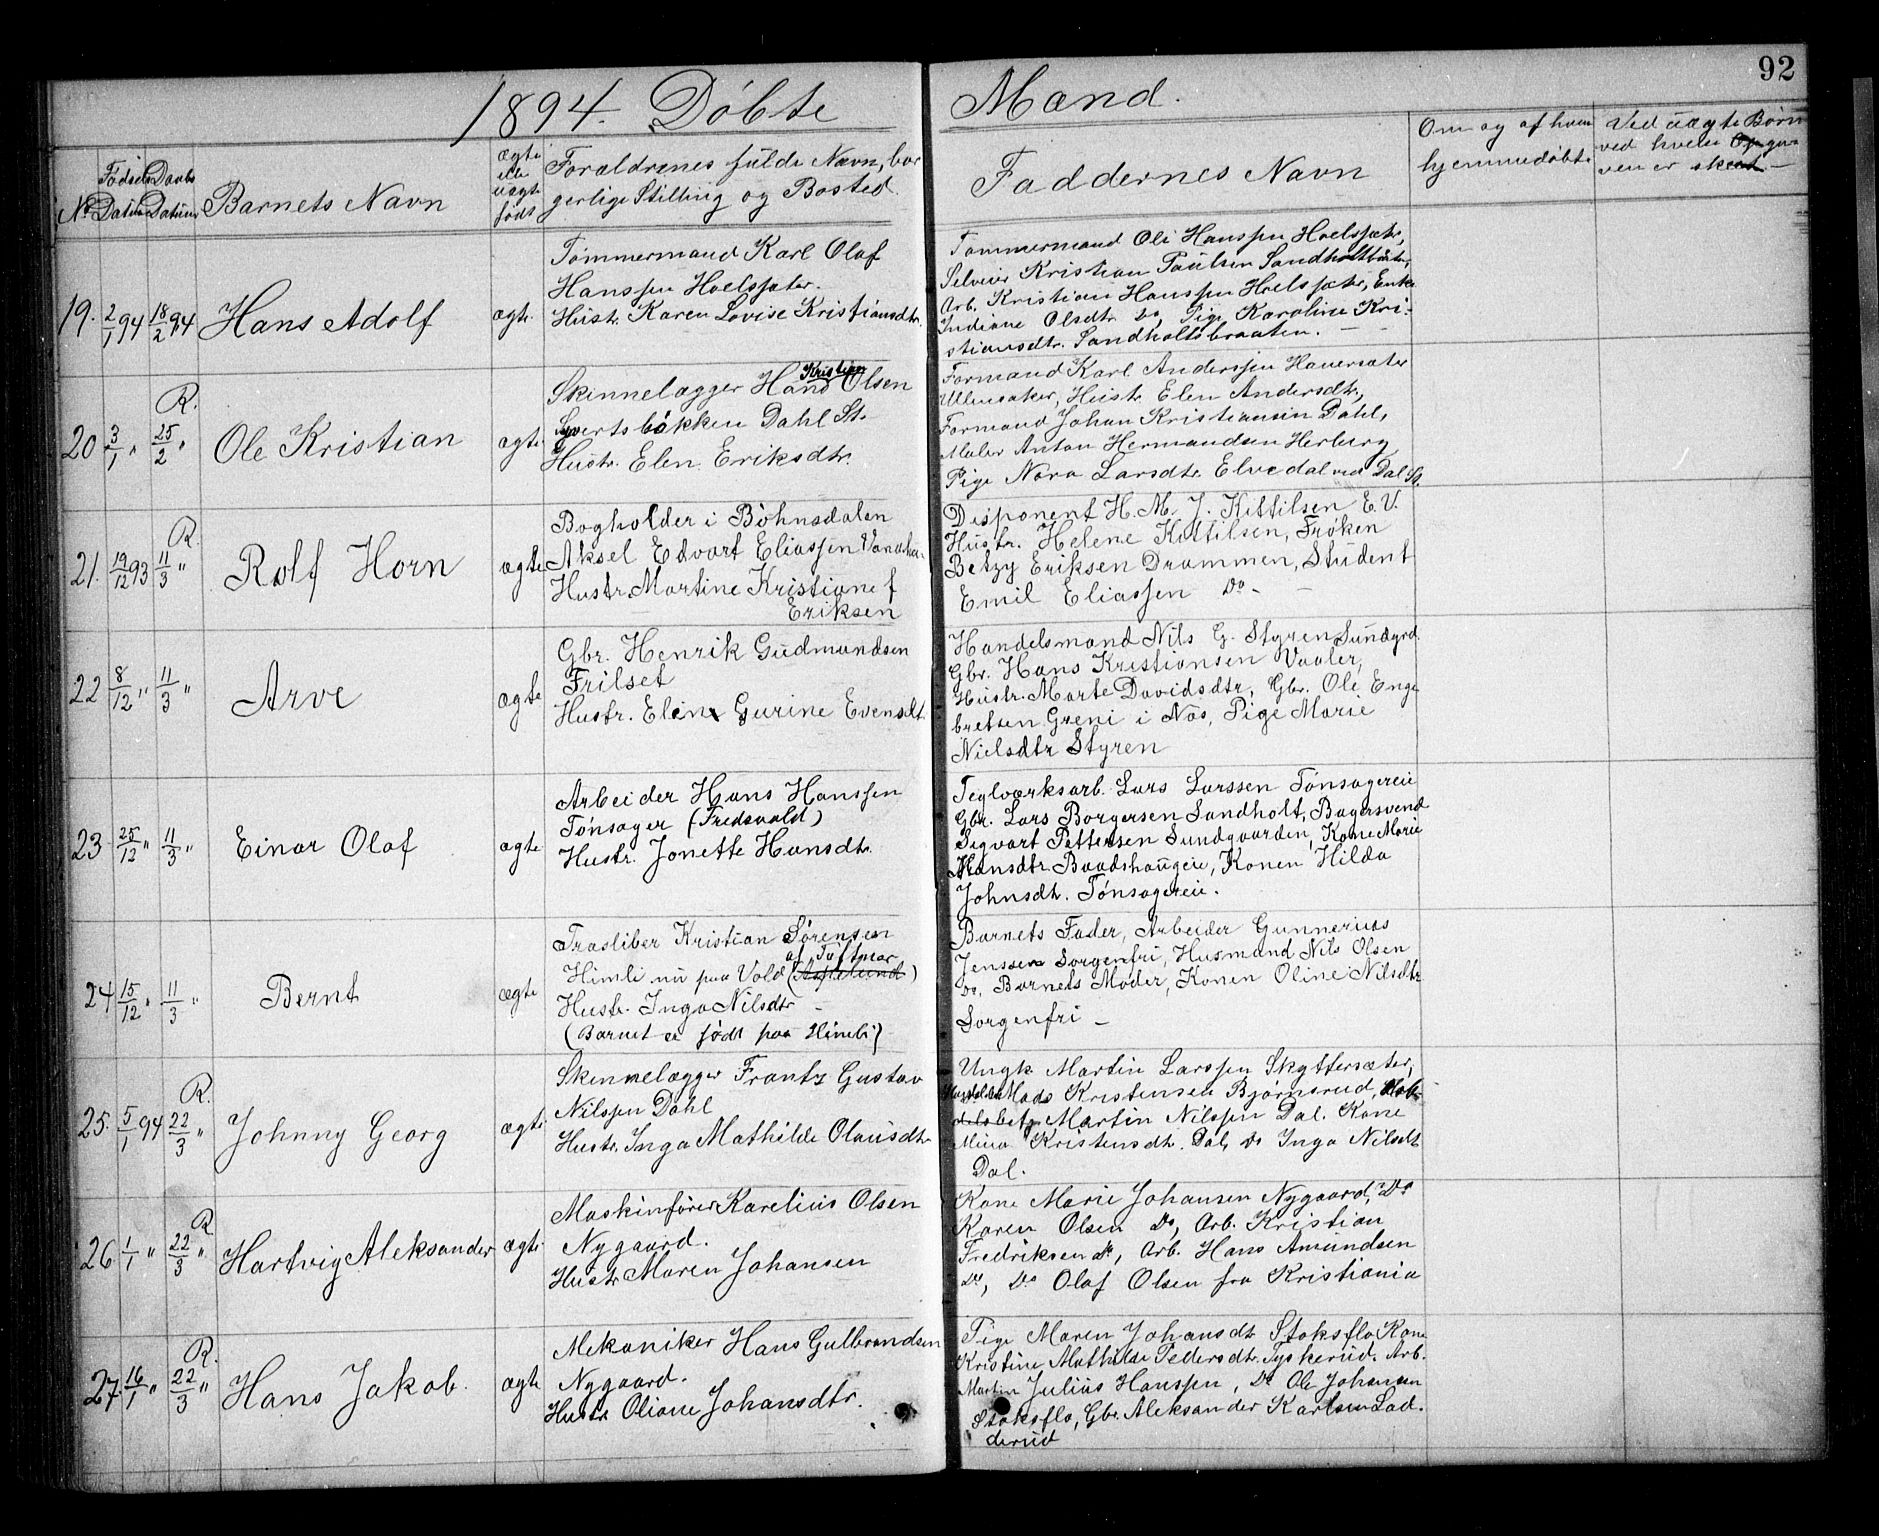 92
1894. Döbte Mænd.
No Fødsels Datum Daabs Datum Barnets Navn ægte elle uægte født Forældrenes fulde Navn, bor gerlige Stilling og Bosted.
Faddernes Navn
Om og af hvem hjemmedøbt
Ved uægte Børn ved hveles Opgiven er skeet
19. 2/1 94 18/2 94 Hans Adolf ægte
Tømmermand Karl Olaf
Hanssen Hoelsjæter.
Hustr. Karen Lovise Kristiansdtr.
Tømmermand Ole Hanssen Hoelsjæter,
Selveier Kristian Paulsen Sandholtbraaten,
Arb. Kristian Hanssen Hoelsjæter, Enke
Indiane Olsdtr. Do, Pige Karoline Kri-
stiansdtr. Sandholtsbraaten.
R.
20 3/1 " 25/2 " Ole Kristian ægte
Skinnelægger Hans Kristian Olsen
Syvertsbakken Dahl St.
Hustr. Elen Eriksdtr.
Formand Karl Anderssen Haversæter
Ullensaker, Hustr. Elen Andersdtr,
Formand Johan Kristiansen Dahl,
Maler Anton Hermandsen Herberg
Pige Nora Larsdtr. Elvedal ved Dal St.
R.
21. 19/12 93 11/3 " Rolf Horn ægte
Bogholder i Bøhnsdalen
Aksel Edvart Eliassen
Hustr. Martine Kristiane f
Eriksen
Disponent H. M. J. Kittilsen E. V.
Hustr. Helene Kittilsen, Frøken
Betzy Eriksen Drammen, Student
Emil Eliassen Do -
22 8/12 " 11/3 " Arve ægte
Gbr. Henrik Gudmundsen
Frilset
Hustr. Eline Gurine Evensdt.
Handelsmand Nils G. Styren Sundgrd.
Gbr. Hans Kristiansen Vaaler,
Hustr. Marte Davidsdtr, Gbr. Ole Enge
bretsen Greni i Nas, Pige Marie
Nielsdtr Styren
23 25/12 " 11/3 " Einar Olaf ægte
Arbeider Hans Hanssen
Tønsager (Fredsvold)
Hustr. Jonette Hansdtr.
Teglværksarb. Lars Larssen Tønsagereie
Gbr. Lars Borgersen Sandholt, Bagersvend
Sigvart Pettersen Sundgaarden, Kone Marie
Hansdtr Baadshaugeie, Konen Hilda
Johnsdt. Tønsagereie.
24 15/12 " 11/3 " Bernt ægte
Træsliber Kristian Sørensen
Himli nu paa Vold (Aspelund) af Tuftmar
Hustr. Inga Nilsdtr -
(Barnet er født paa Himli)
Barnets Fader, Arbeider Gunnerius
Jenssen Sorgenfri, Husmand Nils Olsen
Do, Barnets Moder, Konen Oline Nilsdtr
Sorgenfri -
R.
25. 5/1 94 22/3 " Johnny Georg ægte
Skinnelægger Frantz Gustav
Nilssen Dahl
Hustr. Inga Mathilde Olausdtr
Ungk. Martin Larssen Skyttersæter,
Mads Kristensen Bjørnsrud,
Martin Nilssen Dal. Kone
Mina Kristensdtr. Dal, Do Inga Nilsdt
Dal.
R
26 1/1 " 22/3 " Hartvig Aleksander ægte
Maskinfører Karelius Olsen
Nygaard.
Hustr Maren Johansen
Kone Marie Johansen Nygaard, Do
Karen Olsen Do, Arb. Kristian
Fredriksen do, Arb. Hans Amundsen
Do, Do Olaf Olsen fra Kristiania
R.
27. 16/1 " 22/3 " Hans Jakob. ægte
Mekaniker Hans Gulbrandsen
Nygaard.
Hustr Oliane Johansdtr.
Pige Maren Johansdtr Stoksflo Kone
Kristine Mathilde Pedersdtr. Tyskerud. Arb.
Martin Julius Hanssen, Do Ole Johansen
Stoksflo, Gbr. Aleksander Karlsen Lad-
derud